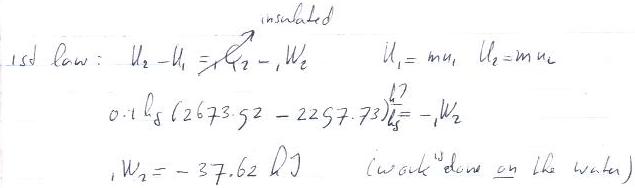 insulated
1st law: U₂ - U₁ = ₁Q₂ - ₁W₂ U₁ = mu₁ U₂ = mu₂
0.1 kg (2673.52 - 2297.73) kJ/kg = - ₁W₂
₁W₂ = - 37.62 kJ (work is done on the water)